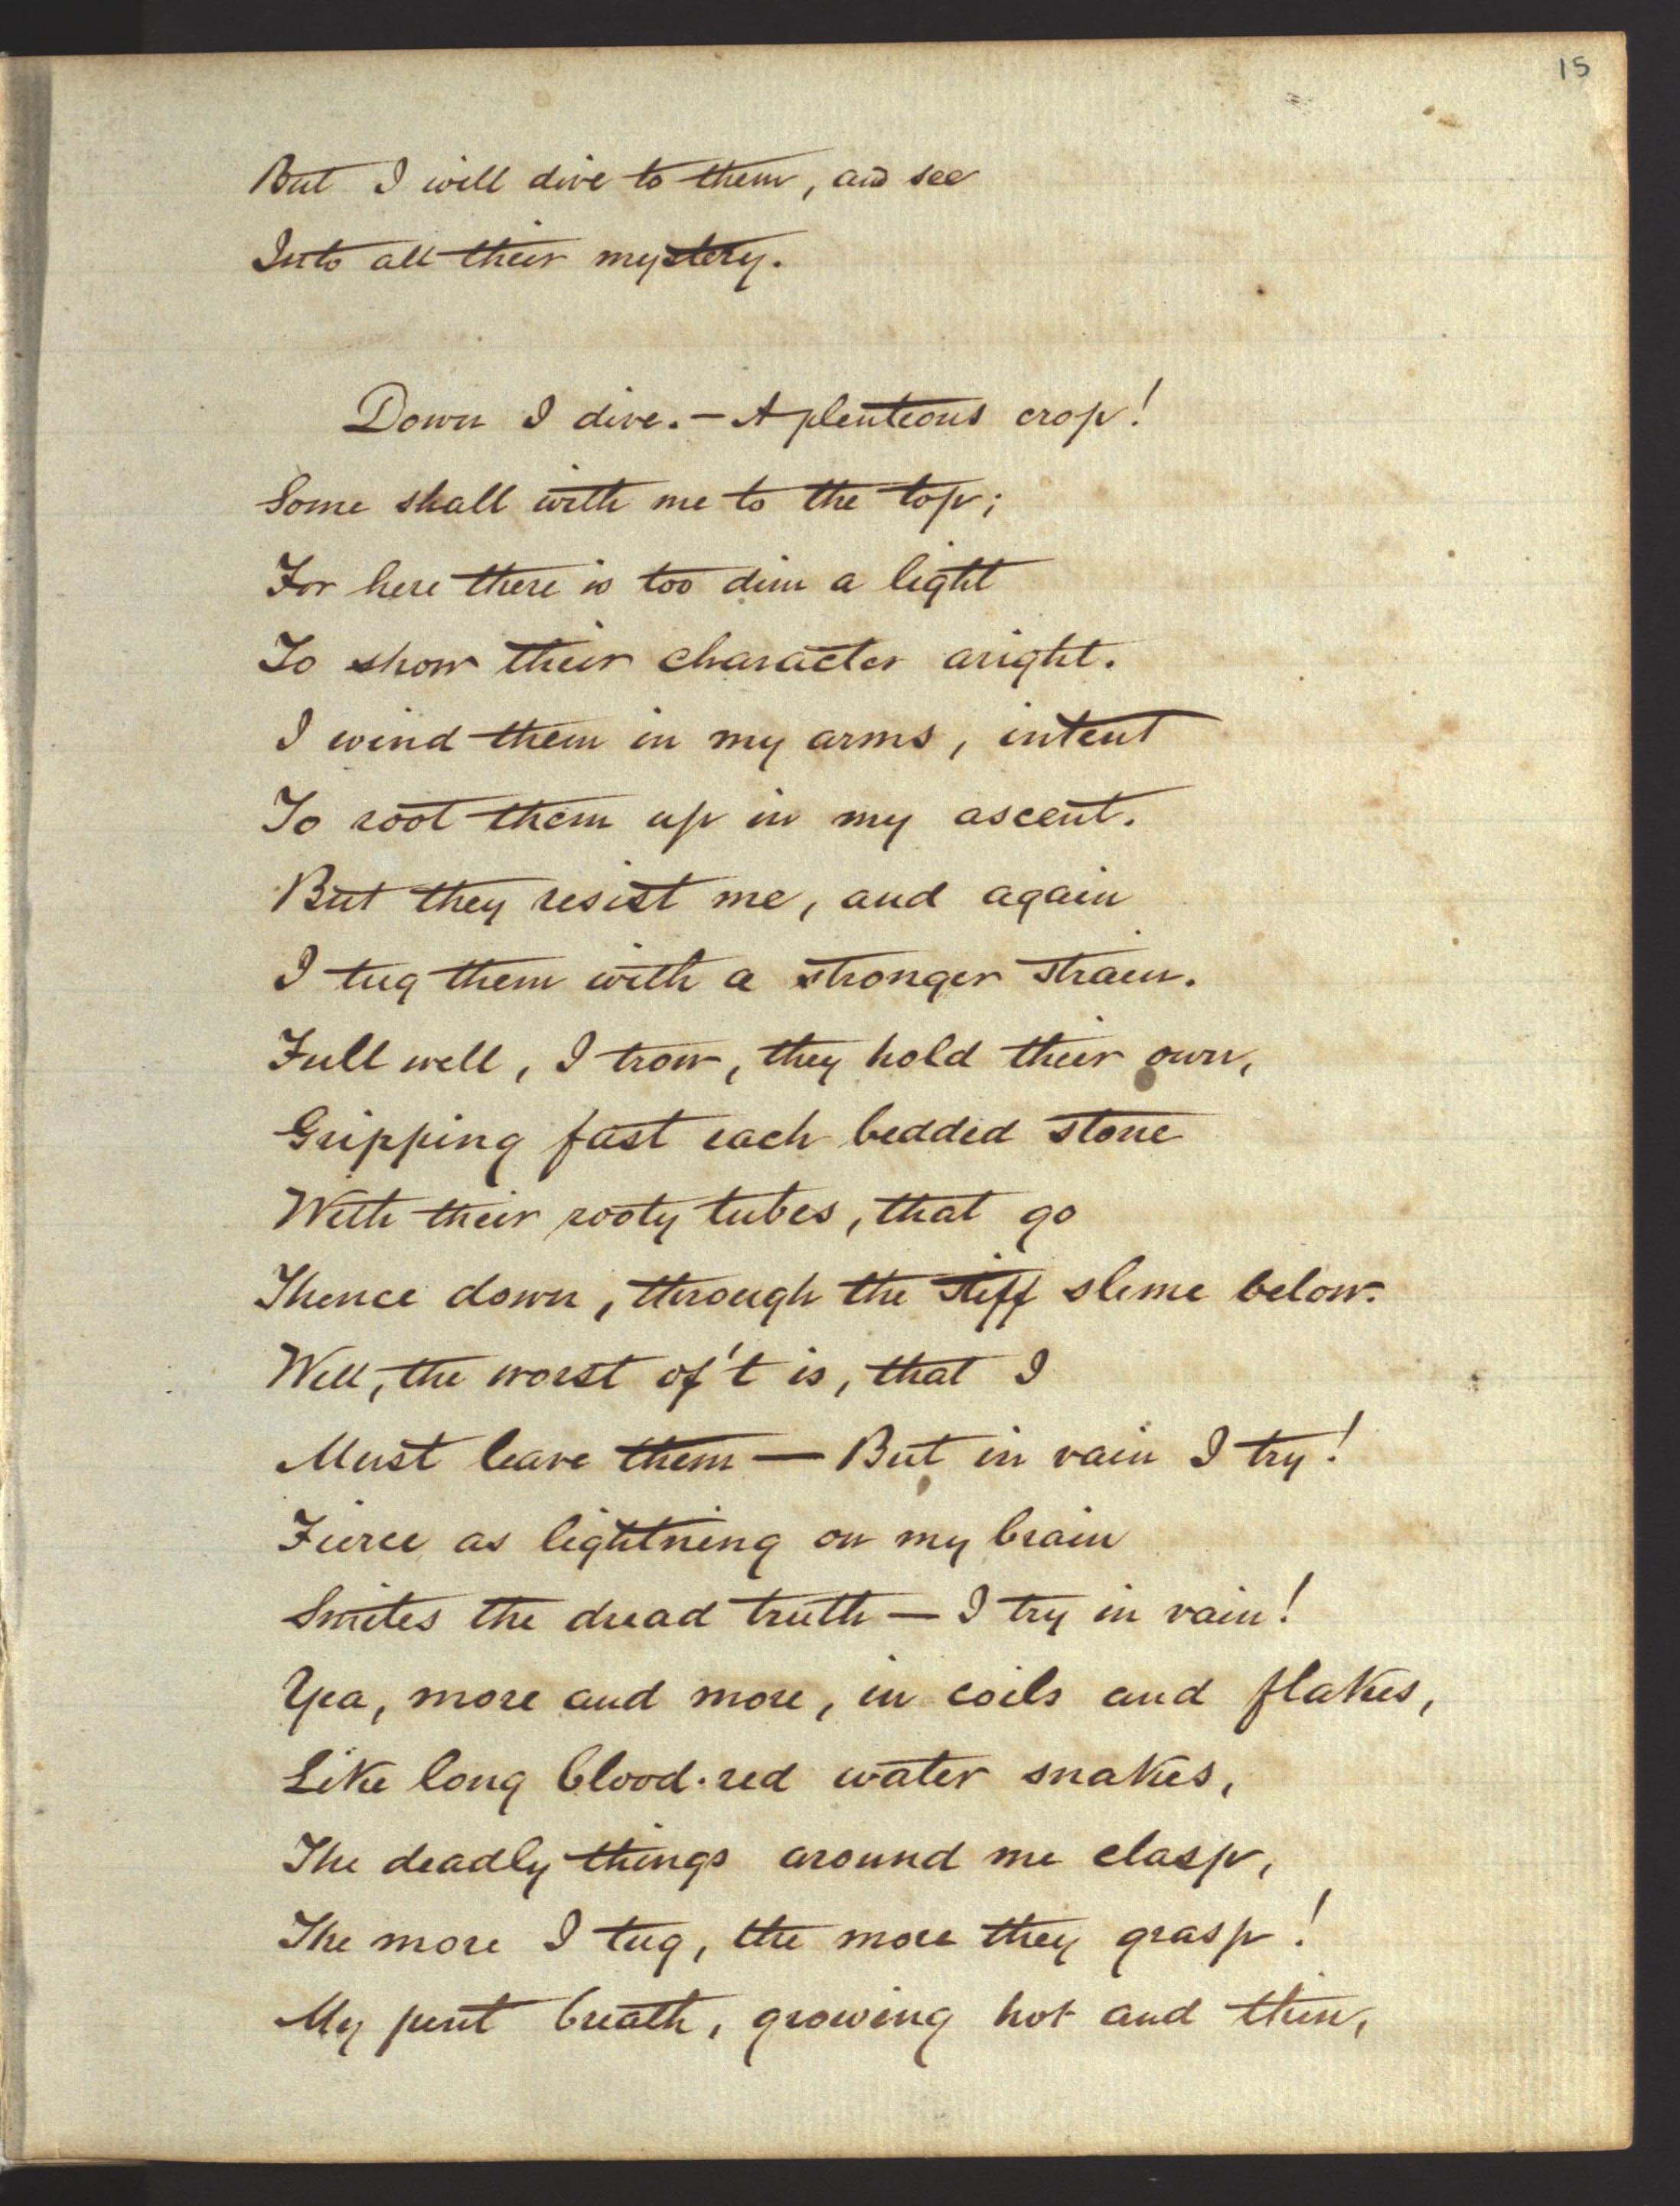 15
But I will dive to them, and see
Into all their mystery.
Down I dive. — A plenteous crop!
Some shall with me to the top;
For here there is too dim a light
To show their character aright.
I wind them in my arms, intent
To root them up in my ascent.
But they resist me, and again
I tug them with a stronger strain.
Full well, I trow, they hold their own,
Gripping fast each bedded stone
With their rooty tubes, that go
Thence down, through the stiff slime below.
Well, the worst of't is, that I
Must leave them — But in vain I try!
Fierce as lightning on my brain
Smites the dread truth — I try in vain!
Yea, more and more, in coils and flakes,
Like long blood-red water snakes,
The deadly things around me clasp,
The more I tug, the more they grasp!
My pent breath, growing hot and thin,